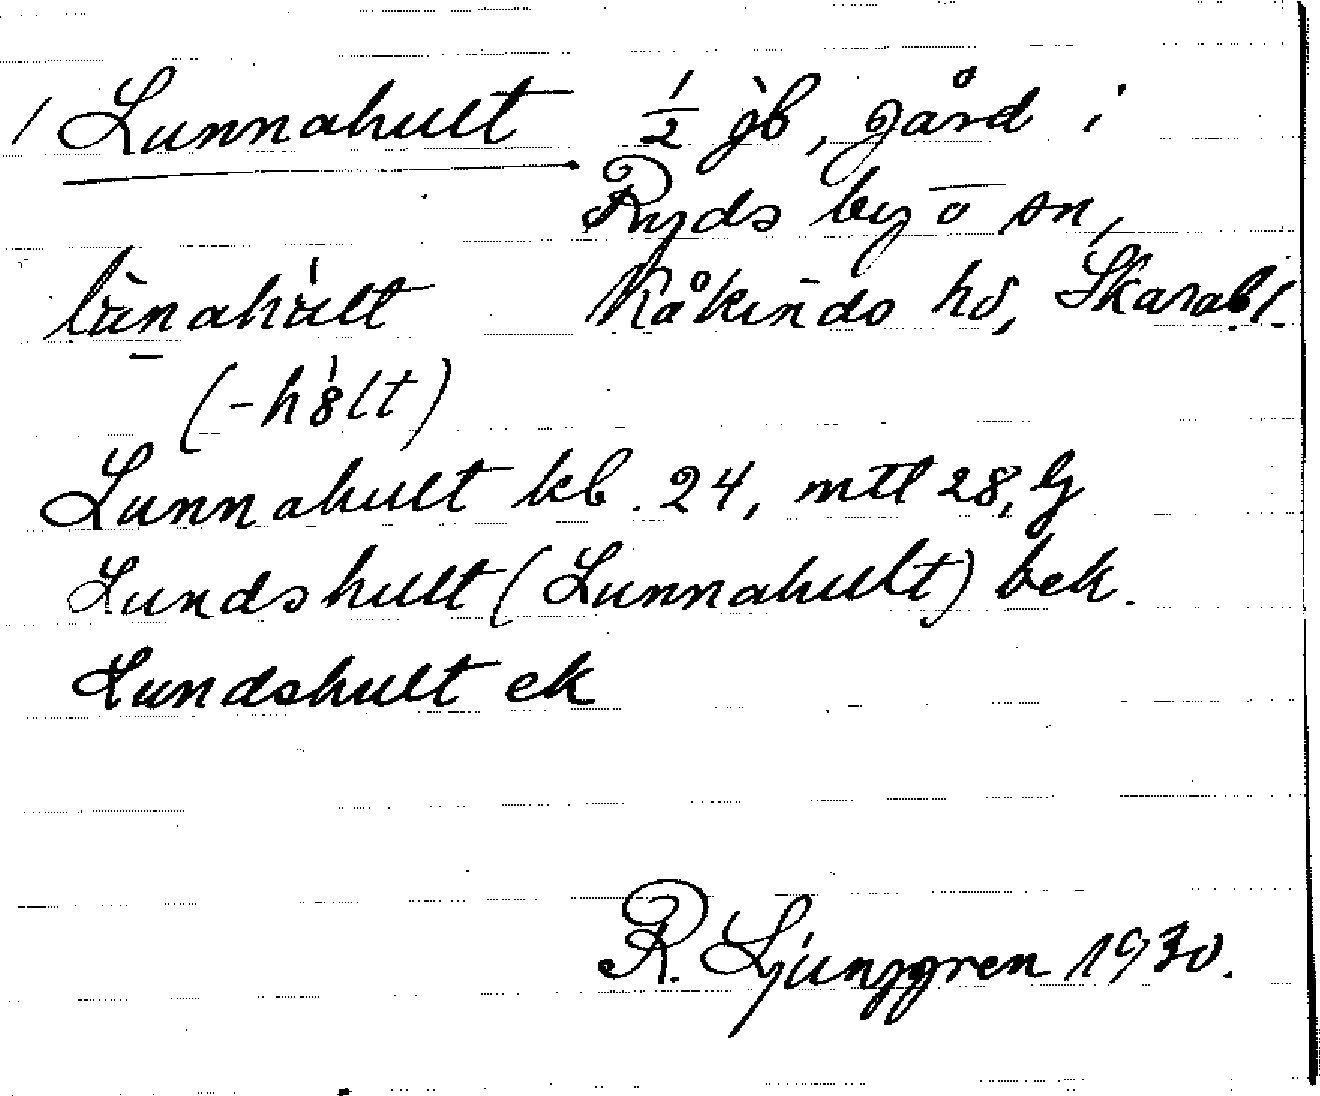 1 Lunnahult ½ jb, gård i
Ryds by o sn,
lùnahùlt Kåkinds hd, Skarabl.
(-hölt)
Lunnahult kb. 24, mtl 28, G
Lundshult (Lunnahult) bek.
Lundshult ek
R. Ljunggren 1930.